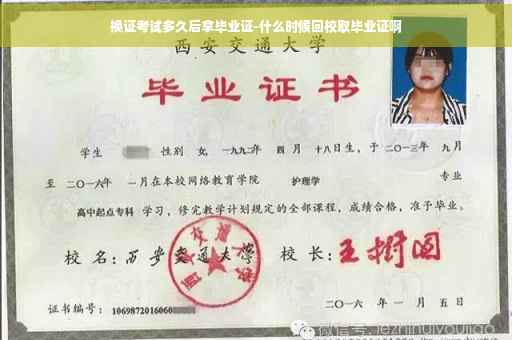 换证考试多久后拿毕业证-什么时候回校取毕业证啊
西安交通大学
毕业证书
学生 性别 女, 一九九二年 四月 十八日生, 于二〇一三年 九月
至 二〇一六年 一月在本校网络教育学院 护理学 专业
高中起点专科 学习, 修完教学计划规定的全部课程, 成绩合格, 准予毕业。
校名: 西安交通大学 校长: 王树国
西安交通大学
证书编号: 1069872016060 二〇一六年 一月 五日
微信号: jiezhinuiyoujiao